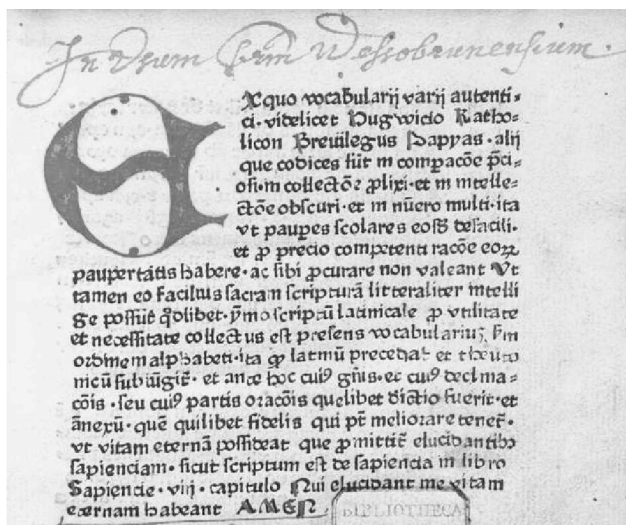 In Usum Frm Wessobrunensium.
Ex quo vocabularij varij autenti-
ci. videlicet Hugwicio Katho-
licon Breuilegus Pappas. alij
que codices sūt in comparacōe p̄ci-
osi. in collectōe ꝓlixi. et in intelle-
ctōe obscuri. et in nūero multi. ita
vt pauꝑes scolares eosdē de facili.
et ꝓ precio competenti racōe eoꝝ
paupertatis habere. ac sibi ꝓcurare non valeant Vt
tamen eo facilius sacram scripturā litteraliter intelli
ge possūt q̄dlibet. ymo scriptū latinicale ꝓ vtilitate
et necessitate collectus est presens vocabularius s̄m
ordinem alphabeti. ita ꝙ latinū precedat et theuto
nicū subiūgit̄. et ante hoc cuiꝰ gn̄is. et cuiꝰ declina-
cōis. seu cuiꝰ partis oracōis quelibet dictio fuerit. et
ānexū. quē quilibet fidelis qui pt̄ meliorare tenet̄.
vt vitam eternā possideat que ꝓmittit̄ elucidantibꝰ
sapienciam. sicut scriptum est de sapiencia in libro
Sapiencie. viij. capitulo Qui elucidant me vitam
eternam habeant AMEN
BIBLIOTHECA